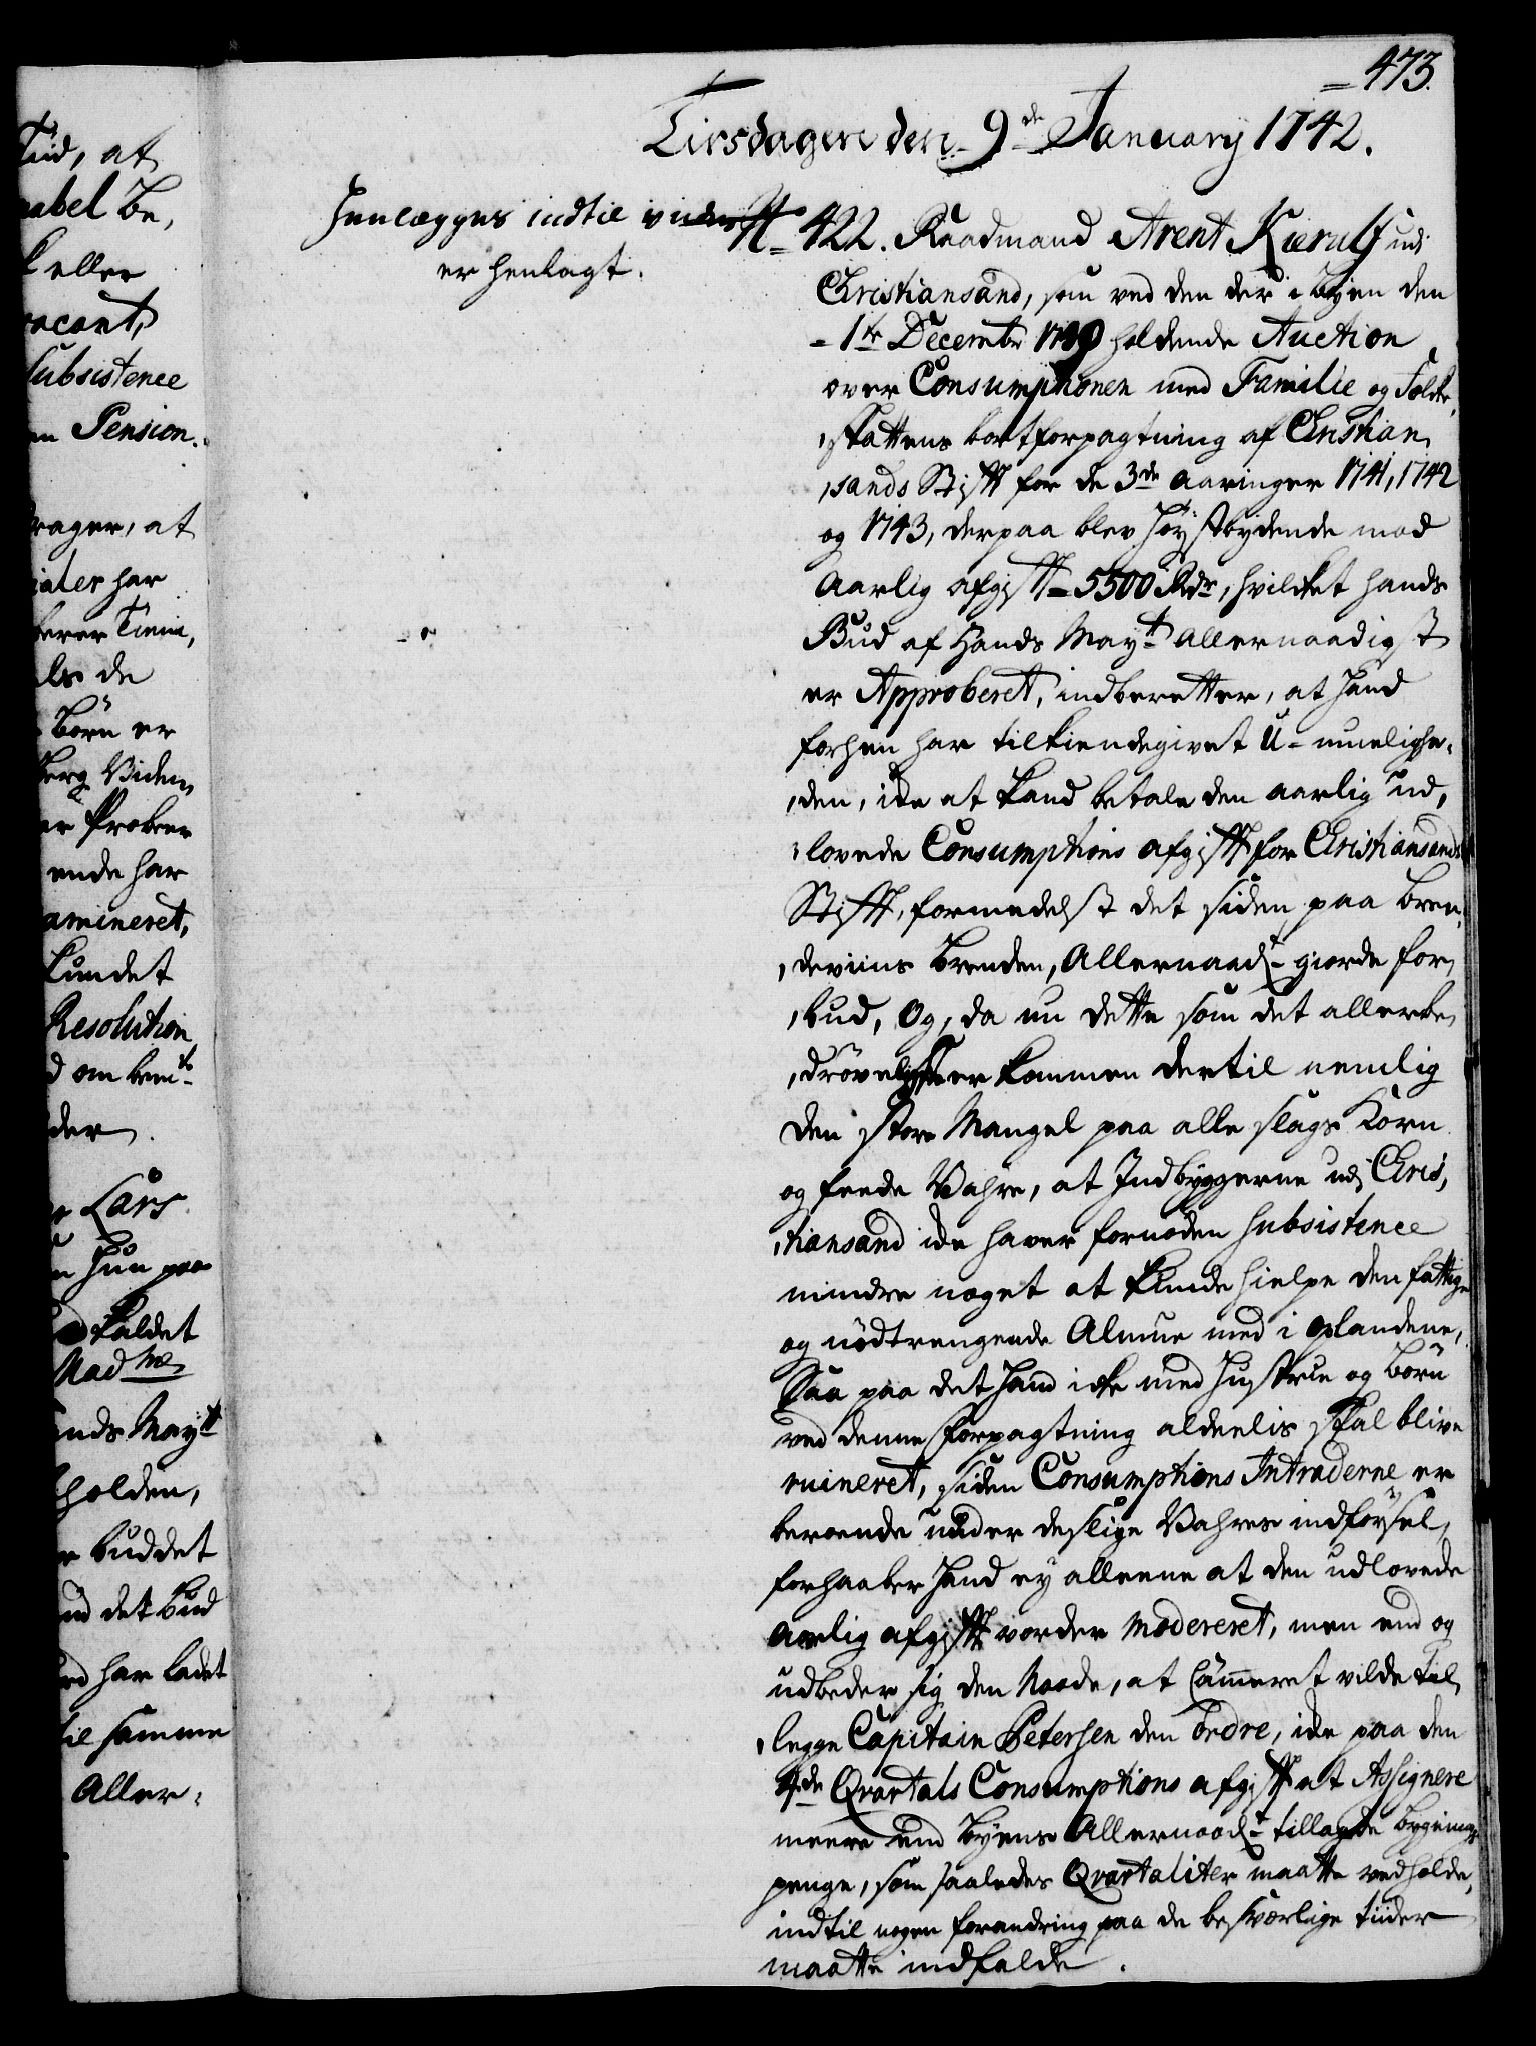 473.
Tirsdagen den 9de January 1742.
Henlægges indtil vider
er henlagt.
N 422. Raadmand Arent Kierulf udi
Christiansand, som ved den der i Byen den
1te Decembr 1740 holdende Auction
over Consumptionen med Familie og Folke,
,skattens bortforpagtning af Christian,
,sands Stift for de 3de Aaringer 1741, 1742
og 1743, derpaa blev Høystbydende mod
Aarlig afgift 5500 Rdr, hvilket hands
Bud af Hands Mayt Allernaadigst
er Approberet, indberetter, at Hand
forhen har tilkiendegivet U-muelighe,
,den, icke at kand betale den aarlig ud,
,lovede Consumptions afgift for Christiansands
Stift, formedelst det siden paa Bren,
,deviins Brenden, Allernaadt giorde for,
,bud, Og, da nu dette som det allerbe,
,drøveligste er kommen dertil nemlig
den store Mangel paa alle slags Korn
og feede Vahre, at Indbyggerne udi Chris,
,tiansand icke haver fornøden Subsistence
mindre noget at kunde hielpe den fattige
og nødtrengende Almue med i Oplandene,
Saa paa det Hand icke med Hustrue og Børn
ved denne Forpagtning aldeelis skal blive
ruineret, siden Consumptions Intraderne er
beroende under deslige Vahres indførsel,
forhaaber Hand ey alleene at den udlovede
Aarlig afgift vorder modereret, men end og
udbeder sig den Naade, at Cammeret vilde til,
,legge Capitain Petersen den Ordre, icke paa den
4de Qvartals Consumptions afgift at Assignere
meere end Byens Allernaadt tillagde bygnings
penge, som saaledes Qvartaliter maatte vedholde,
indtil nogen forandring paa de besværlige tiider
maatte indfalde.
Tiid, at
eller
Subsistence
Pension.
at
har
de
Børn er
ende har
kundet
Resolution
Lars
Hun paa
kaldet
Madme
Hands Mayt
holden,
buddet
det Bud
har ladet
til samme
Aller,